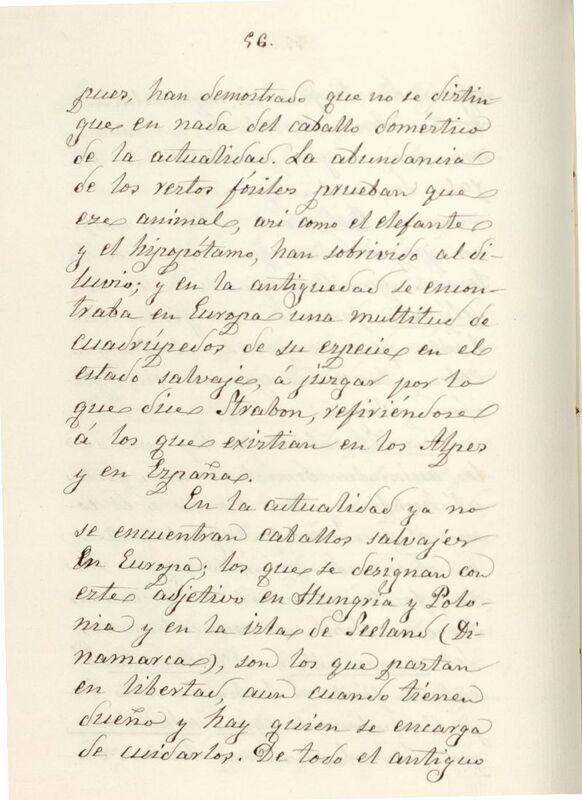 56.
pues, han demostrado que no se distin-
gue en nada del caballo doméstico
de la actualidad. La abundancia
de los restos fósiles prueban que
ese animal, asi como el elefante
y el hipopótamo, han sobrivido al di-
luvio; y en la antiguedad se encon-
traba en Europa una multitud de
cuadrúpedos de su especie en el
estado salvaje, á juzgar por lo
que dice Strabon, refiriéndose
á los que existian en los Alpes
y en España.
En la actualidad ya no
se encuentran caballos salvajes
en Europa; los que se designan con
este adjetivo en Hungria y Polo-
nia y en la isla de Seeland (Di-
namarca), son los que pastan
en libertad, aun cuando tienen
dueño y hay quien se encarga
de cuidarlos. De todo el antiguo